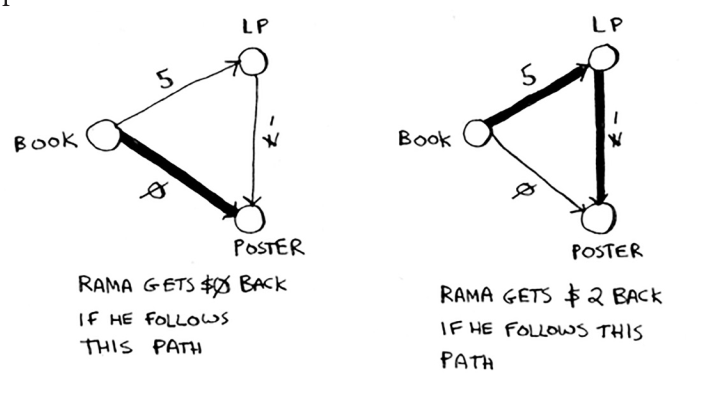 LP
5
BOOK
0
POSTER
RAMA GETS $0 BACK
IF HE FOLLOWS
THIS PATH
LP
5
BOOK
0
POSTER
RAMA GETS $2 BACK
IF HE FOLLOWS THIS
PATH